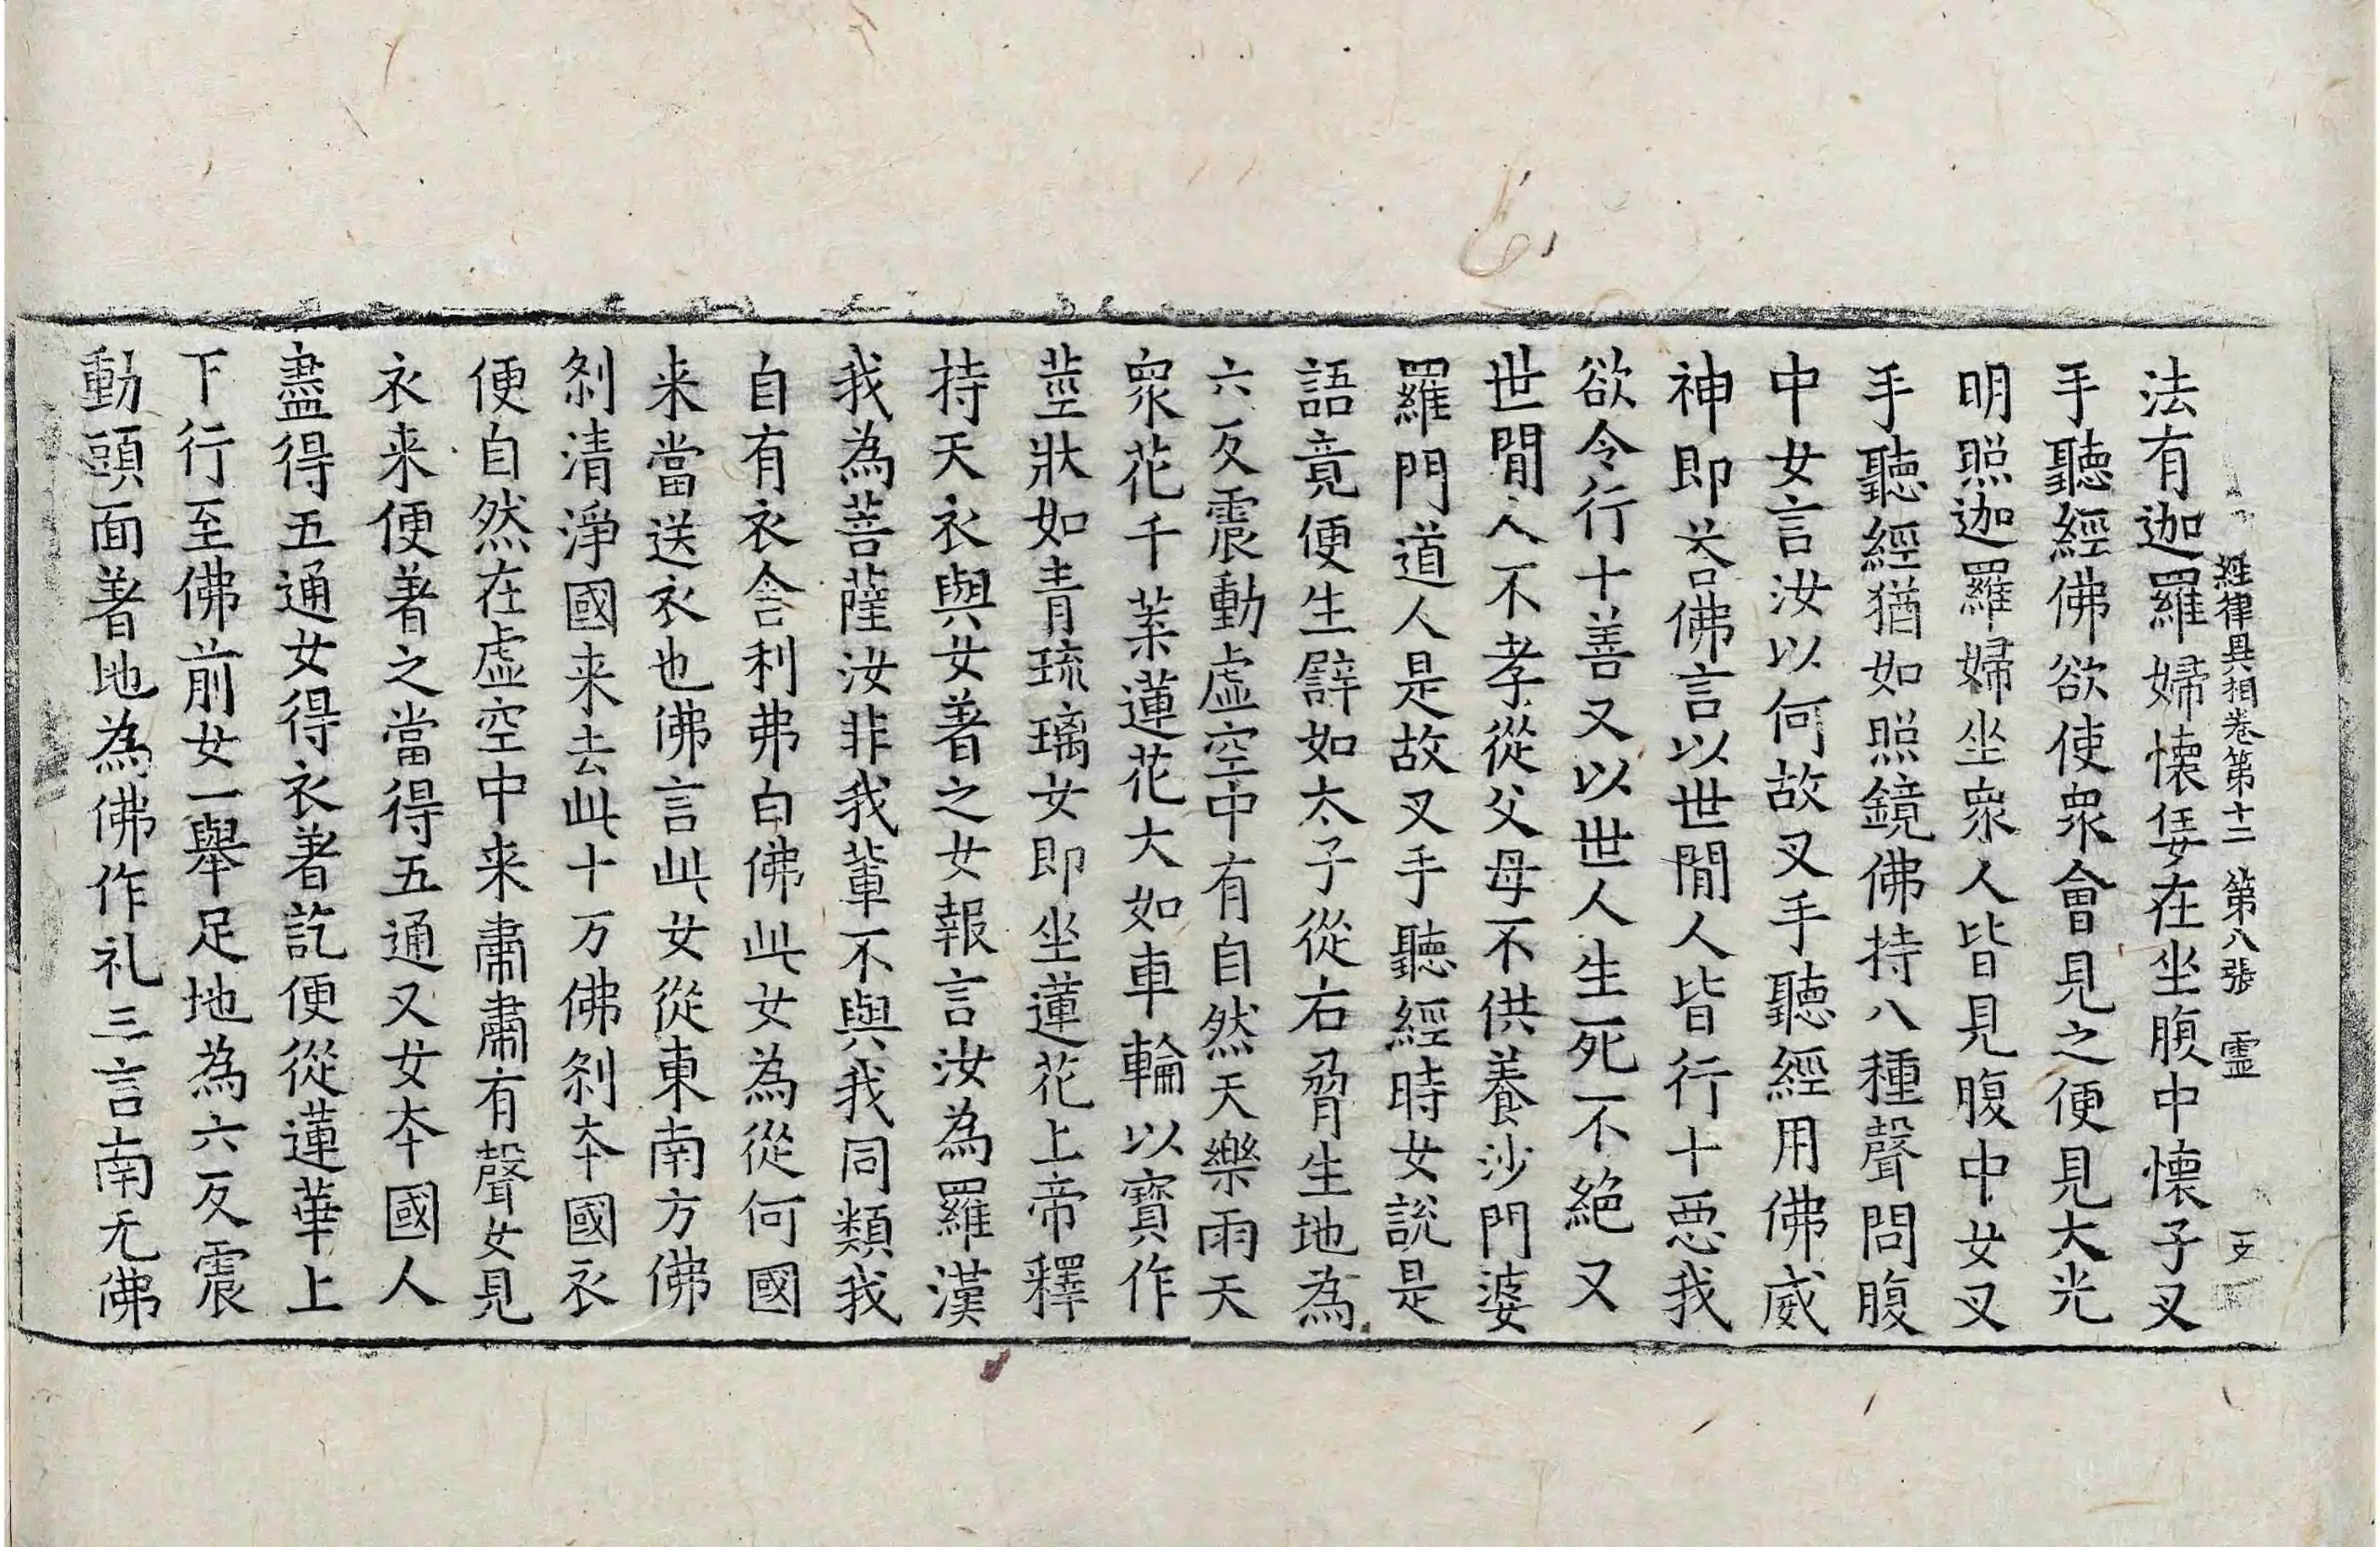 經律異相卷第十二 第八張 靈
法有迦羅婦懷妊在坐腹中懷子叉
手聽經佛欲使衆會見之便見大光
明照迦羅婦坐衆人皆見腹中女叉
手聽經猶如照鏡佛持八種聲問腹
中女言汝以何故叉手聽經用佛威
神即荅佛言以世閒人皆行十惡我
欲令行十善又以世人生死不絕又
世閒人不孝從父母不供養沙門婆
羅門道人是故叉手聽經時女說是
語竟便生譬如太子從右脅生地為
六反震動虛空中有自然天樂雨天
衆花千葉蓮花大如車輪以寶作
莖狀如青琉璃女即坐蓮花上帝釋
持天衣與女著之女報言汝為羅漢
我為菩薩汝非我輩不與我同類我
自有衣舍利弗白佛此女為從何國
来當送衣也佛言此女從東南方佛
刹清淨國来去此十万佛刹夲國衣
便自然在虛空中来肅肅有聲女見
衣来便著之當得五通又女夲國人
盡得五通女得衣著訖便從蓮華上
下行至佛前女一舉足地為六反震
動頭面著地為佛作礼三言南无佛